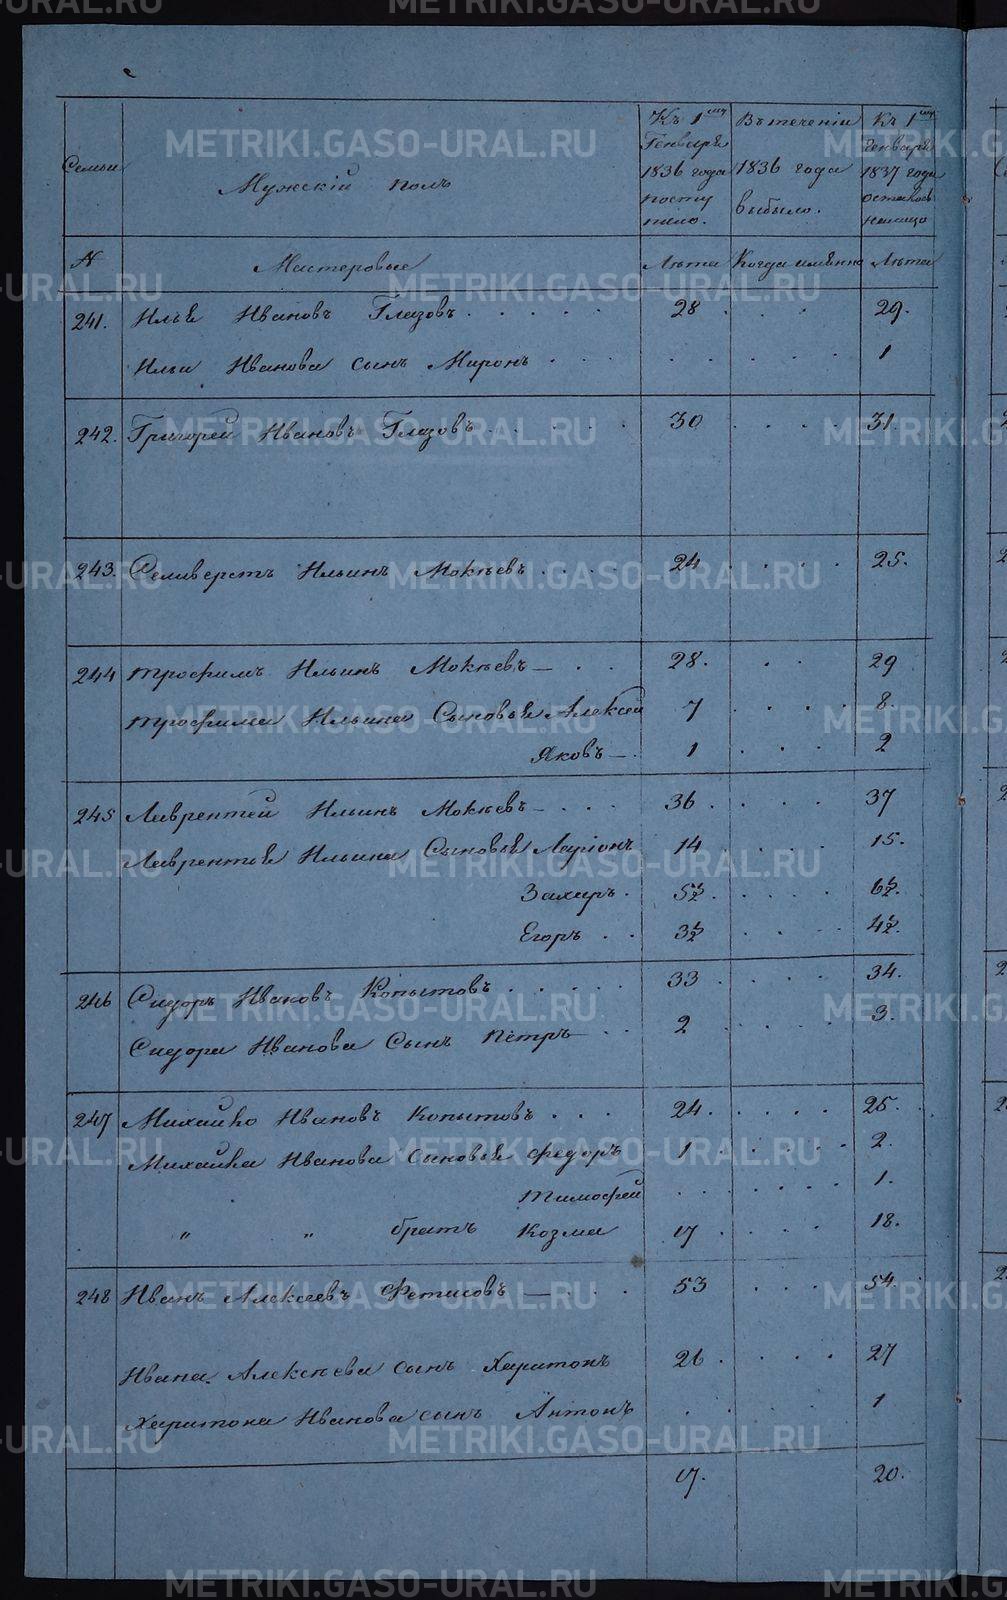 Семьи
Мужскій полъ
Къ 1му Генваря 1836 года поступило.
Въ теченіи 1836 года выбыло.
Къ 1му Генваря 1837 года осталось налицо
N Мастеровые Лѣта Когда именно Лѣта
241. Илья Ивановъ Глазовъ . . . . . 28 . . . 29.
Ильи Иванова сынъ Миронъ . . . . . . . . 1
242. Григорей Ивановъ Глазовъ . . . . . 30 . . . . 31.
243. Селиверстъ Ильинъ Мокѣевъ . . . . 24 . . . . 25.
244 Трофимъ Ильинъ Мокѣевъ — . . 28. . . 29
Трофима Ильина Сыновья Алексей 7 . . . . 8.
Яковъ — . 1 . . . 2
245 Лаврентей Ильинъ Мокѣевъ — . . . 36 . . . . 37
Лаврентья Ильина Сыновья Ларіонъ 14 . . . . 15.
Захаръ . 5½ . . . . 6½.
Егоръ . . 3½ . . . 4½.
246 Сидоръ Ивановъ Копытовъ . . . . . 33 . . . . 34.
Сидора Иванова Сынъ Петръ — . . 2 . . . . 3.
247 Михайло Ивановъ Копытовъ . . . 24 . . . . . 25.
Михайла Иванова Сыновья Федоръ 1 . . . . . 2.
Тимофей . . . . . . 1.
„ „ братъ Козма 17 . . . 18.
248 Иванъ Алексеевъ Фетисовъ — . . . 53 . . . 54.
Ивана Алексѣева сынъ Харитонъ 26 . . . . . 27
Харитона Иванова сынъ Антонъ . . . . . 1
17. 20.
METRIKI.GASO-URAL.RU